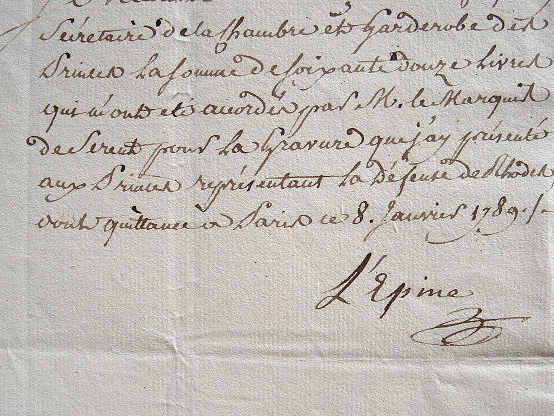 Sécretaire de la Chambre et Garderobe des
Princes la somme de soixante douze Livres
qui m'ont eté accordés par M. le Marquis
de Serent pour la Gravure que j'ay présenté
aux Princes représentant la Défense de Rhodes
dont quittance a Paris ce 8. Janvier 1789./.
L'Epine